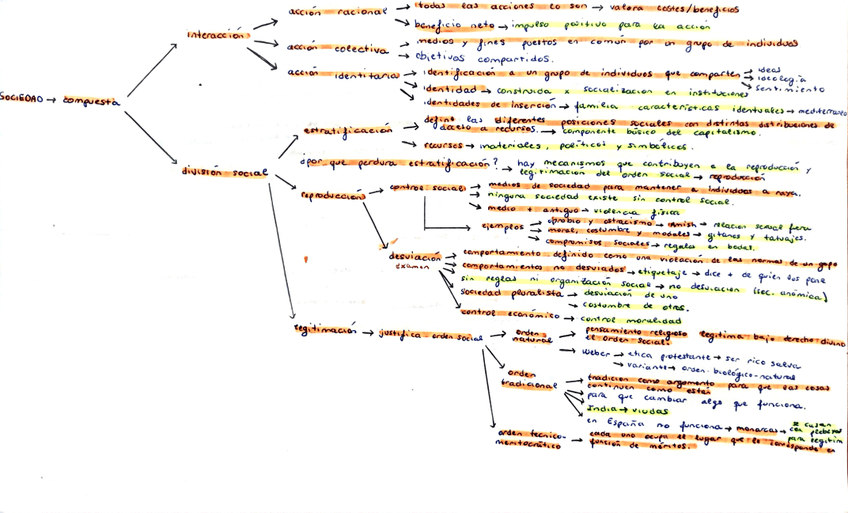 SOCIEDAD → compuesta
interacción
acción racional → todas las acciones lo son → valora costes/beneficios
beneficio neto → impulso positivo para la acción
acción colectiva → medios y fines puestos en común por un grupo de individuos
→ objetivos compartidos.
acción identitaria → identificación a un grupo de individuos que comparten → ideas
→ ideología
→ sentimiento
identidad → construida x socialización en instituciones
identidades de inserción → familia características identuales → mediterraneo
división social
estratificación → define las diferentes posiciones sociales con distintas distribuciones de
acceso a recursos. → componente básico del capitalismo.
recursos → materiales, políticos y simbólicos.
¿por que perdura estratificación? → hay mecanismos que contribuyen a la reproducción y
legitimación del orden social → reproducción
reproducción → control social → medios de sociedad para mantener a individuos a raya.
→ ninguna sociedad existe sin control social.
→ medio + antiguo → violencia física
ejemplos → oprobio y ostracismo → Amish → relacion sexual fuera
→ moral, costumbre y modales → gitanos y tatuajes.
→ compromisos sociales → regalos en bodas.
desviación → comportamiento definido como una violación de las normas de un grupo
examen
→ comportamientos no desviados → etiquetaje → dice + de quien los pone
sin reglas ni organización social → no desviacion (soc. anómica)
sociedad pluralista → desviación de uno
→ costumbre de otros.
control económico → control moralidad
legitimación → justifica orden social → orden natural → pensamiento religioso legitima bajo derecho divino
el orden social.
→ Weber → etica protestante → ser rico salva
→ variante → orden biológico-natural
orden tradicional → tradicion como argumento para que las cosas
continuen como están
para que cambiar algo que funciona.
India → viudas
en España no funciona → monarcas → se casan
con plebeyas
para legitim
orden tecnico-meritocrático → cada uno ocupa el lugar que le corresponde en
función de méritos.